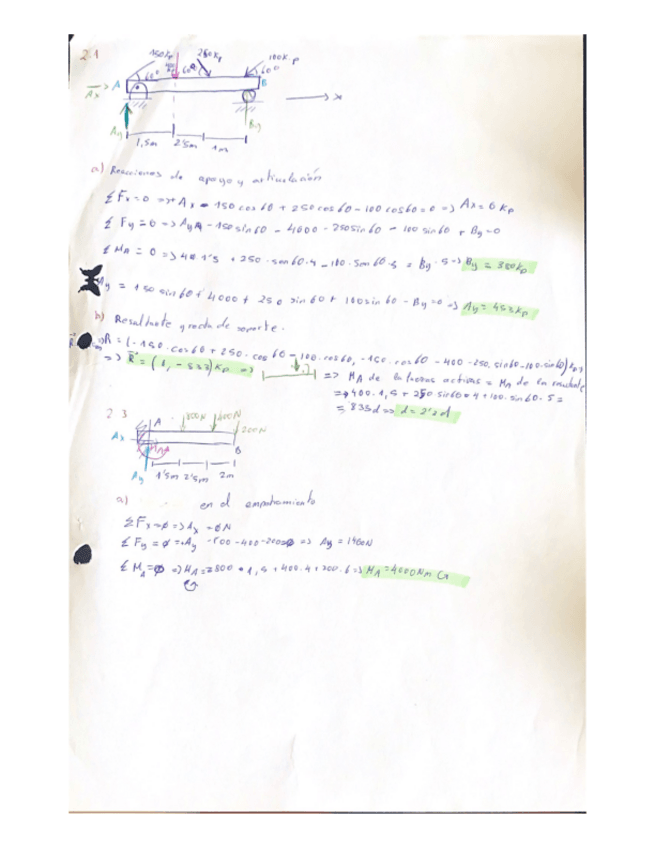 2.1
150Kp 250Kp 100K.p
60º 60º 60º
Ax A B
→ x
Ay By
1,5m 2'5m 1m
a) Reacciones de apoyo y articulación
ΣFx=0 => Ax - 150 cos60 + 250cos60 - 100cos60=0 => Ax=0Kp
ΣFy=0 => Ay - 150sin60 - 4000 - 250sin60 - 100sin60 + By=0
ΣMA=0 => 1'5 + 250·sen60·4 - 100·sen60·5 = By·5 =>
Ay = 150 sin60 + 4000 + 250 sin60 + 100sin60 - By=0 => Ay=453Kp
b) Resultante y recta de soporte.
R = (-150·cos60 + 250·cos60 - 100·cos60, -150·cos60 - 400 - 250·sin60-100·sin60)
=> R = ( , -833)Kp => => MA de fuerzas activas = MA de la
400·1,5 + 250 sin60·4 + 100·sin60·5 =
= 833d => d=2'2d
2 3
A 800N 400N 200N
Ax MA B
Ay 1'5m 2'5m 2m
a) en el empotramiento
ΣFx=0 => Ax=0N
ΣFy=0 => Ay -400-200=0 => Ay = 1400N
ΣMA=0 => MA=800·1,5+400·4+200·6 => MA=4000Nm